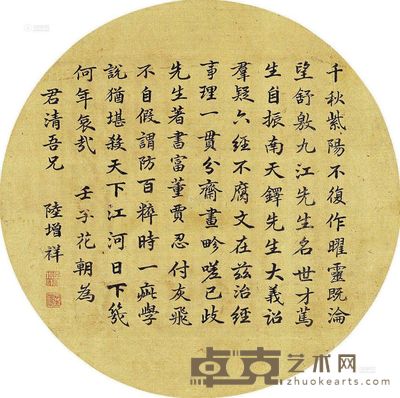 千秋紫陽不復作曜靈既淪
望舒敫九江先生名世才篤
生自振南天鐸先生大義詒
羣疑六經不腐文在兹治經
事理一貫分齋畫畛嗟已歧
先生著書富董賈忍付灰飛
不自假謂防百粹時一疵學
說猶堪救天下江河日下幾
何年哀哉 壬子花朝為
君清吾兄 陸增祥
卓克艺术网
zhuokearts.com